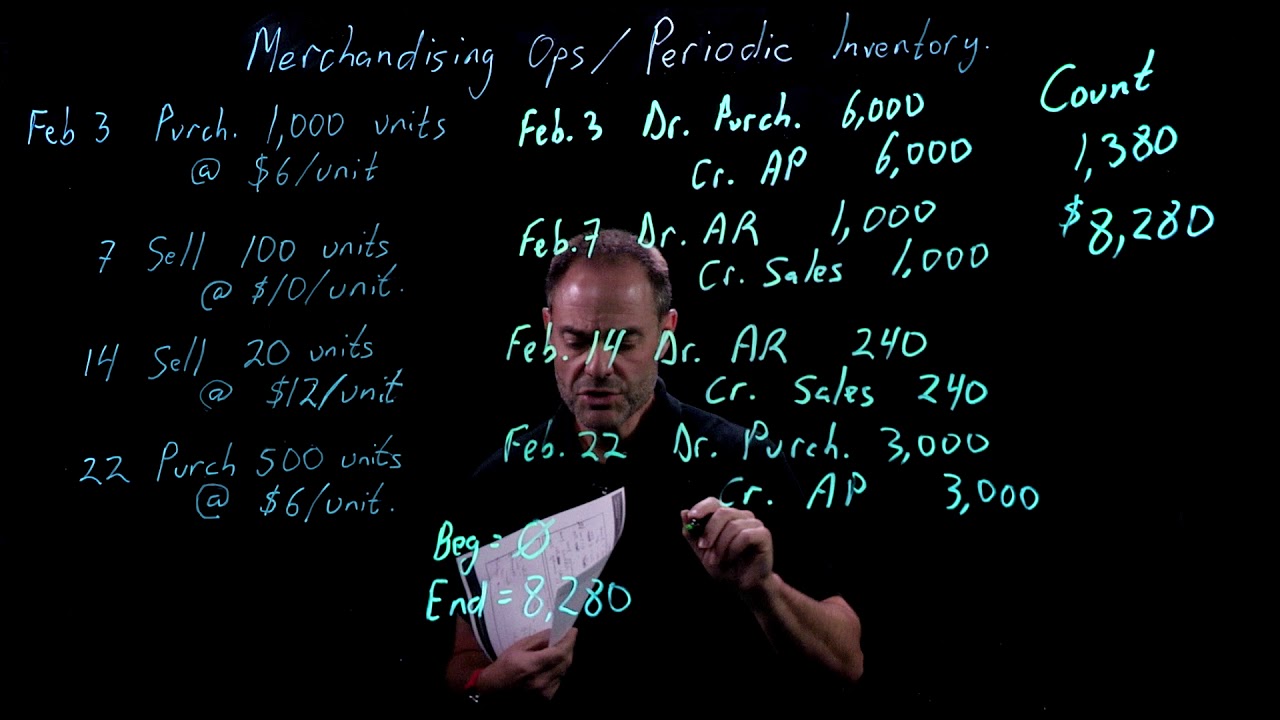 Merchandising Ops/Periodic Inventory.
Feb 3 Purch. 1,000 units
@ $6/unit
7 Sell 100 units
@ $10/unit.
14 Sell 20 units
@ $12/unit
22 Purch 500 units
@ $6/unit.
Feb. 3 Dr. Purch. 6,000
Cr. AP 6,000
Feb. 7 Dr. AR 1,000
Cr. Sales 1,000
Feb. 14 Dr. AR 240
Cr. Sales 240
Feb. 22 Dr. Purch. 3,000
Cr. AP 3,000
Beg = Ø
End = 8,280
Count
1,380
$8,280